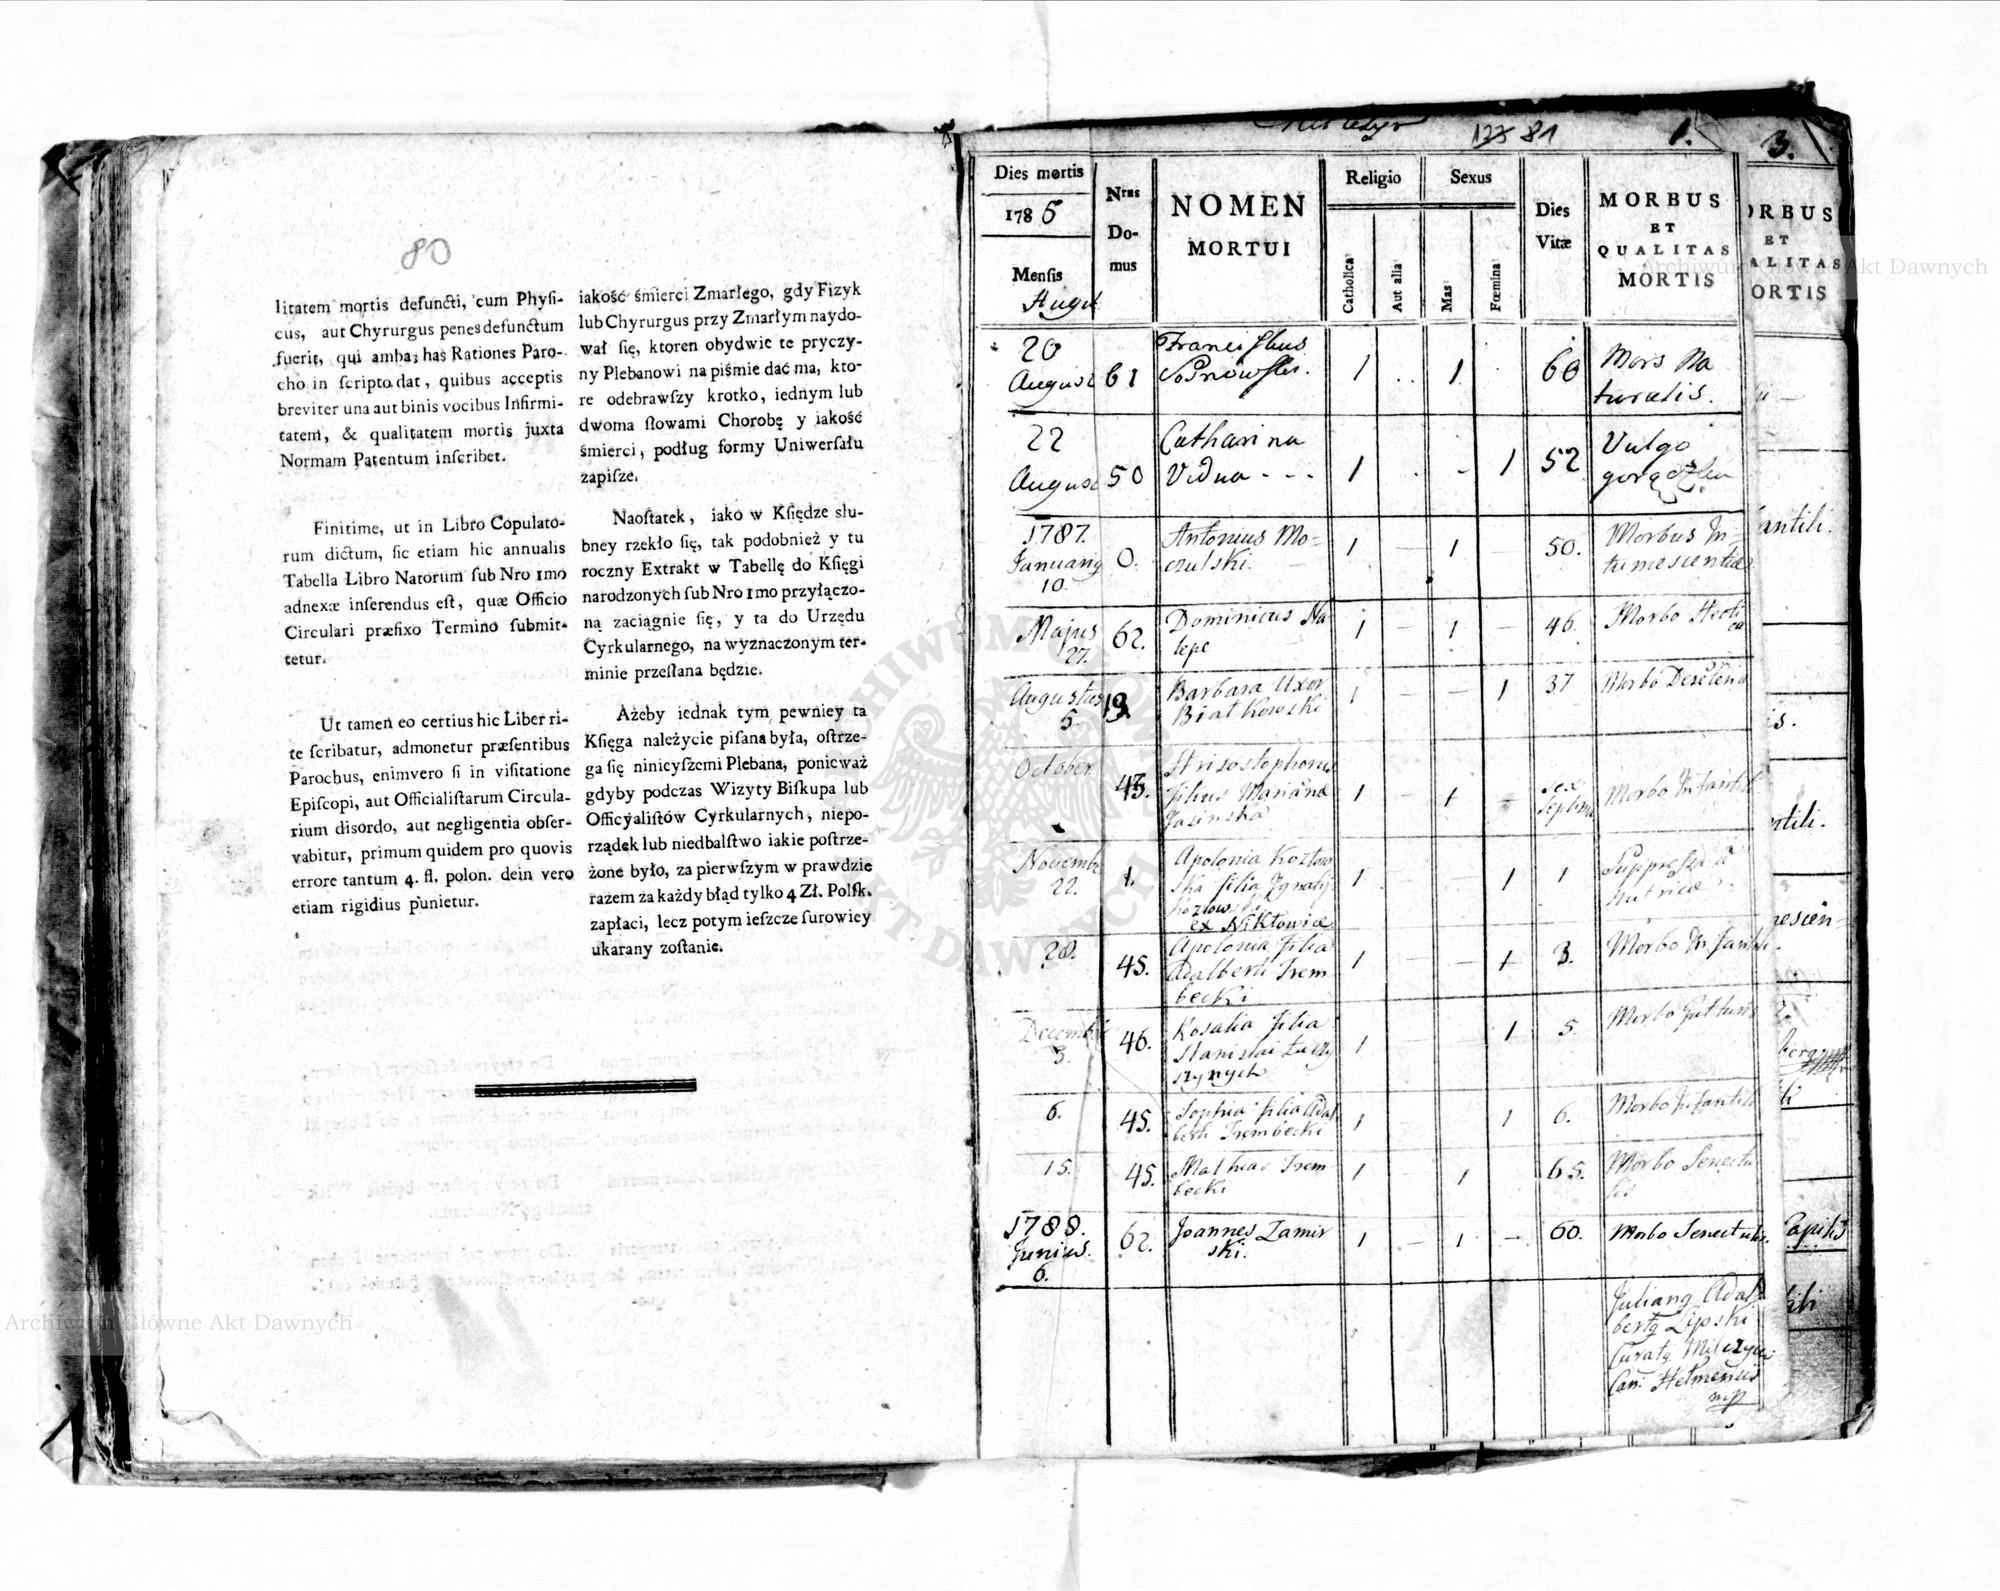 80
litatem mortis defuncti, cum Phyſi-
cus, aut Chyrurgus penes defunctum
fuerit, qui ambas has Rationes Paro-
cho in ſcripto dat, quibus acceptis
breviter una aut binis vocibus Infirmi-
tatem, & qualitatem mortis juxta
Normam Patentum inſcribet.
Finitime, ut in Libro Copulato-
rum dictum, ſic etiam hic annualis
Tabella Libro Natorum ſub Nro 1mo
adnexæ inſerendus eſt, quæ Officio
Circulari præfixo Termino ſubmit-
tetur.
Ut tamen eo certius hic Liber ri-
te ſcribatur, admonetur præſentibus
Parochus, enimvero ſi in viſitatione
Epiſcopi, aut Officialiſtarum Circula-
rium disordo, aut negligentia obſer-
vabitur, primum quidem pro quovis
errore tantum 4. fl. polon. dein vero
etiam rigidius punietur.
iakość śmierci Zmarłego, gdy Fizyk
lub Chyrurgus przy Zmarłym naydo-
wał ſię, ktoren obydwie te pryczy-
ny Plebanowi na piśmie dać ma, kto-
re odebrawſzy krotko, iednym lub
dwoma ſłowami Chorobę y iakość
śmierci, podług formy Uniwerſału
zapiſze.
Naoſtatek, iako w Kſiędze slu-
bney rzekło ſię, tak podobnież y tu
roczny Extrakt w Tabellę do Kſięgi
narodzonych ſub Nro 1mo przyłączo-
ną zaciągnie ſię, y ta do Urzędu
Cyrkularnego, na wyznaczonym ter-
minie przeſłana będzie.
Ażeby iednak tym pewniey ta
Kſięga należycie piſana była, oſtrze-
ga ſię ninieyſzemi Plebana, ponieważ
gdyby podczas Wizyty Biſkupa lub
Officyaliſtów Cyrkularnych, niepo-
rządek lub niedbalſtwo iakie poſtrze-
żone było, za pierwſzym w prawdzie
razem za każdy błąd tylko 4 Zł. Polſk.
zapłaci, lecz potym ieſzcze ſurowiey
ukarany zoſtanie.
81 1. 3.
Dies mortis
1786
Menſis
August
Nrus
Do-
mus
NOMEN
MORTUI
Religio
Catholica
Aut alia
Sexus
Mas
Fœmina
Dies
Vitæ
MORBUS
ET
QUALITAS
MORTIS
20 Franciſcus
August 61 1 .. 1 . 60 Mors Na
turalis.
22 Catharina Vulgo
August 50 Vidua - - - 1 . - 1 52 gorączka
1787. Antonius Mo=
Januarij 0. czulski. 1 – 1 – 50. Morbus In=
10. tumescentiæ
Majus 62. Dominicus Na 1 – 1 – 46. Morbo Hecti
27. lepe ca
Augustus 19 Barbara Uxor 1 – – 1 37 Morbo
5. Białkowski
October 43. filius Marianæ 1 – 1 – Morbo Infantili
Jasinska
Novembr 1. Apolonia Kozłow 1 – – 1 1 Suppressa a
22. ska filia Ignatij nutrice
Kozłowski
28. 45. Apolonia filia 1 – – 1 3. Morbo Infantili.
Adalberti Trem
becki
Decembr 46. Rosalia filia 1 1 5. Morbo
3. Stanislai
6. 45. Sophia filia Adal 1 1 6. Morbo Infantili
berti Trembecki
15. 45. Mathias Trem 1 – 1 – 65. Morbo Senectu
becki tis
1788. Joannes Zamir
Junius. 62. ski. 1 – 1 – 60. Morbo Senectutis.
6.
Lipski
ORBUS
ET
ALITAS
ORTIS
Archiwum Główne Akt Dawnych
Archiwum Główne Akt Dawnych
ARCHIWUM GŁÓWNE AKT DAWNYCH